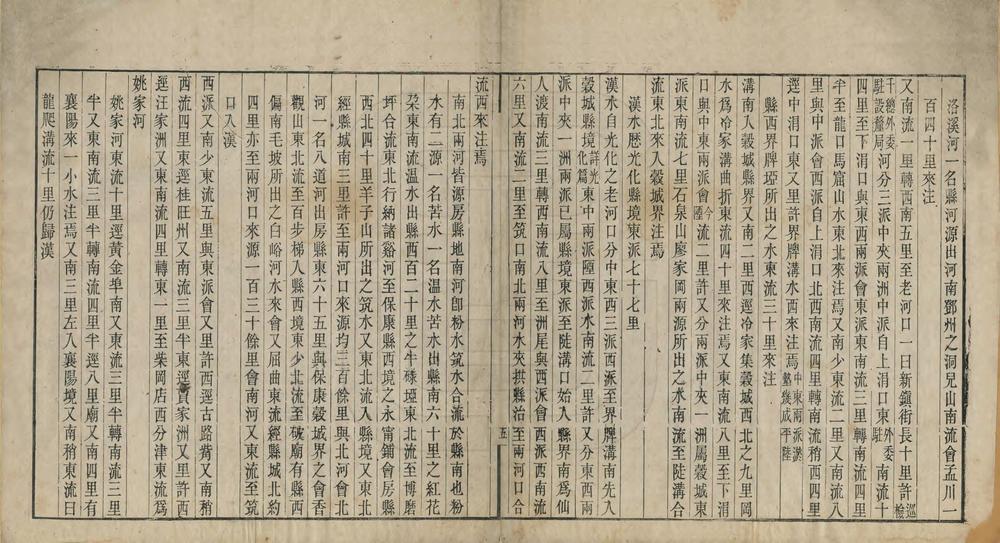 洛溪河一名縣河源出河南鄧州之洞兒山南流會孟川一
百四十里來注
又南流一里轉西南五里至老河口一日新鎮街長十里許巡檢
千總外委駐設釐局河分三派中夾兩洲中派自上涓口東外委駐南流十
四里至下涓口與東南流三里轉南流四里
半至龍口馬窟山水東北來注焉又南少東流二里又南流八
里與中派會西派自上涓口北西南流四里轉南流稍西四里
逕中涓口東又里許界牌溝水西來注焉中東兩派淤墊幾成平陸
縣西界牌埡所出之水東流三十里來注
溝南入穀城縣界又南二里西逕冷家集穀城西北之九里岡
水爲冷家溝曲折東流四十里來注又東南流八里至下涓
口與中東兩派會今陻流二里許又分兩派中夾一洲屬穀城東
派東南流七里石泉山廖家岡兩源所出之水南流至陡溝合
流東北來入穀城界注焉
漢水歷光化縣境東派七十七里
漢水自光化之老河口分中東西三派西派至界牌溝南先入
穀城縣境詳光化篇東中兩派陻西派水南流二里許又分東西兩
派中夾一洲兩派已屬縣境東派至陡溝口始入縣界南爲仙
人渡南流三里轉西南流八里至洲尾與西派會西派西南流
六里又南流二里至筑口南北兩河水夾拱縣治至兩河口合
五
流西來注焉
南北兩河皆源房縣地南河卽粉水筑水合流於縣南也粉
水有二源一名苦水一名溫水苦水出縣南六十里之紅花
朶東南流溫水出縣西百二十里之牛𥔎埡東北流至博磨
坪合流東北行納諸谿河至保康縣西境之永甯鋪會房縣
西北四十里羊子山所出之筑水又東北流入縣境又東北
經縣城南三里許至兩河口來源均三百餘里與北河會北
河一名八道河出房縣東六十五里與保康穀城界之會香
觀山東北流至百步梯入縣西境東少北流至破廟有縣西
偏南毛坡所出之白峪河水來會又屈曲東流經縣城北約
四里亦至兩河口來源一百三十餘里會南河又東流至筑
口入漢
西派又南少東流五里與東派會又里許西逕古路觜又南稍
西流四里東逕桂旺州又南流三里半東逕賈家洲又里許西
逕汪家洲又東南流四里轉東一里至柴岡店西分津東流爲
姚家河
姚家河東流十里逕黃金㟁南又東流三里半轉南流三里
半又東南流三里半轉南流四里半逕八里廟又南四里有
襄陽來一小水注焉又南三里左入襄陽境又南稍東流曰
龍爬溝流十里仍歸漢